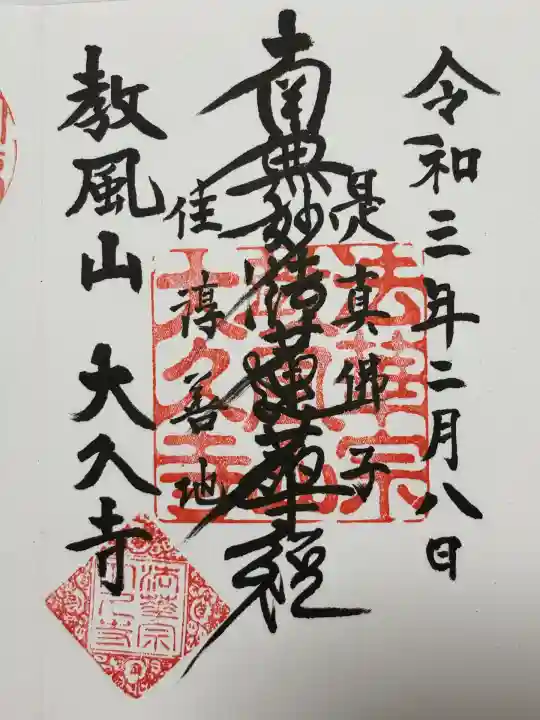 令和三年二月八日
是真佛子
南無妙法蓮華経
住淳善地
教風山 大久寺
法華宗
大久寺
法華宗
大久寺